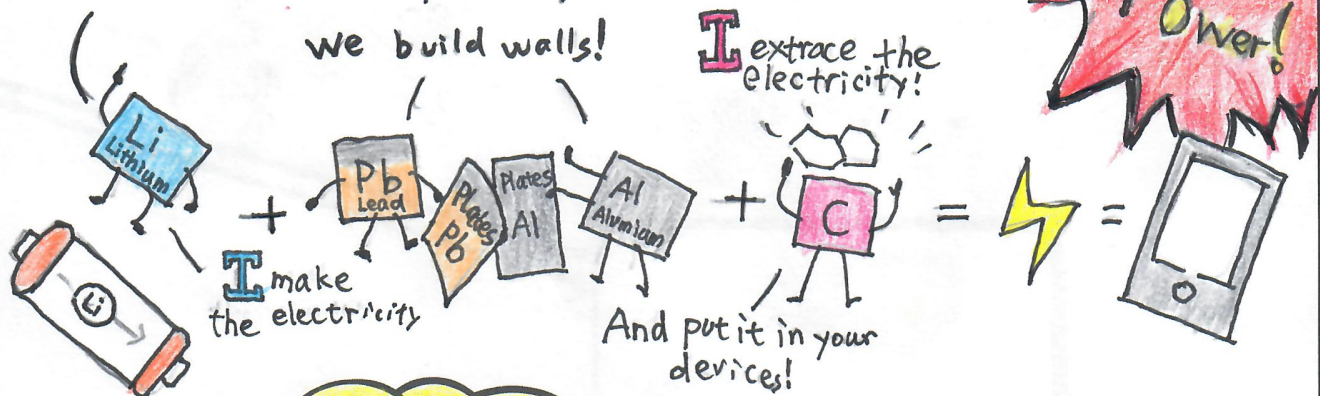 we build walls!
I extrace the
electricity!
ower!
Li
Lithium
Pb
Lead
Plates
Pb
Plates
Al
Al
Alumiaum
C
Li
I make
the electricity
And put it in your
devices!